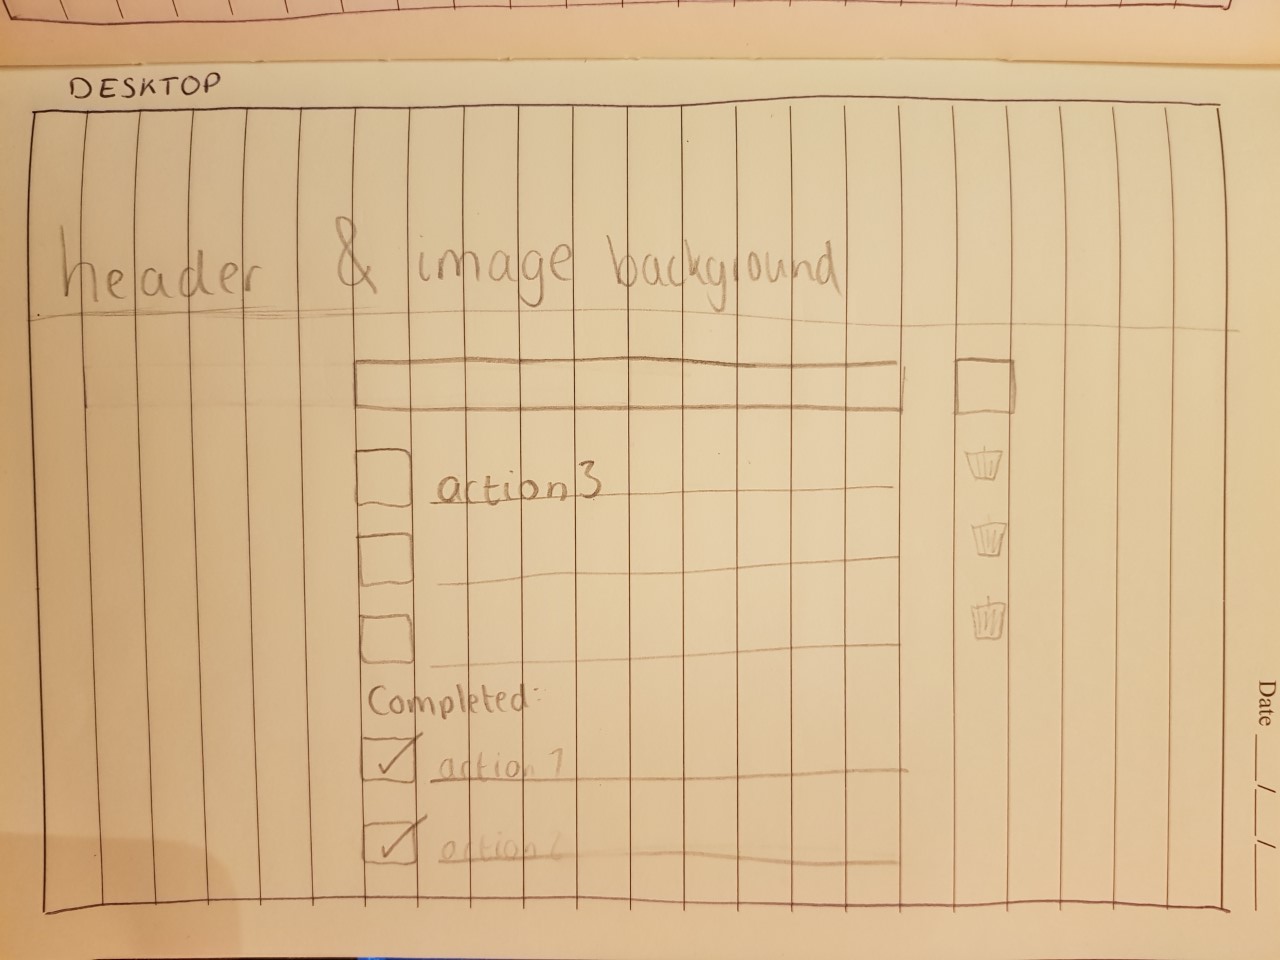 DESKTOP
header & image background
action 3
Completed:
action 1
action
Date __/__/__